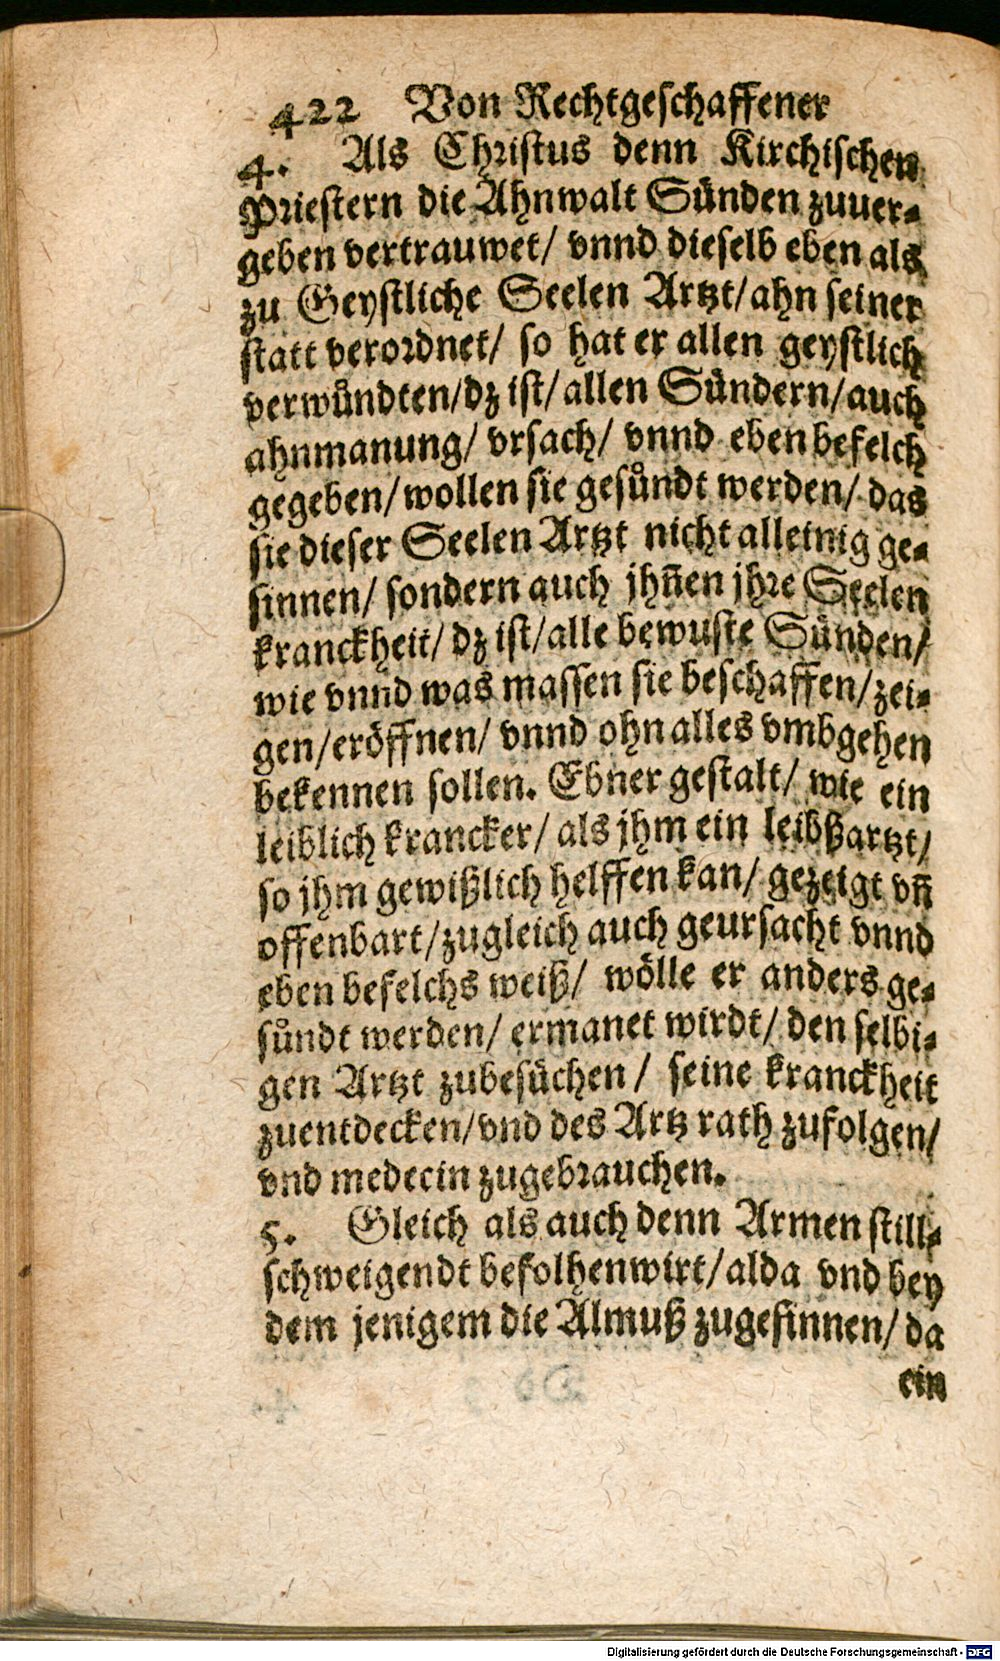 422 Von Rechtgeschaffener
4. Als Christus denn Kirchischen
Priestern die Ahnwalt Sünden zuuer⸗
geben vertrauwet/ vnnd dieselb eben als
zu Geystliche Seelen Artzt/ahn seiner
statt verordnet/ so hat er allen geystlich
verwůndten/dz ist/allen Sündern/auch
ahnmanung/ vrsach/ vnnd eben befelch
gegeben/wollen sie gesůndt werden/ das
sie dieser Seelen Artzt nicht alleinig ge⸗
sinnen/ sondern auch jhñen jhre Seelen
kranckheit/ dz ist/alle bewuste Sünden/
wie vnnd was massen sie beschaffen/zei⸗
gen/eröffnen/ vnnd ohn alles vmbgehen
bekennen sollen. Ebner gestalt/ wie ein
leiblich krancker/ als jhm ein leibßartzt/
so jhm gewißlich helffen kan/ gezeigt vñ
offenbart/zugleich auch geursacht vnnd
eben befelchs weiß/ wölle er anders ge⸗
sůndt werden/ ermanet wirdt/ den selbi⸗
gen Artzt zubesüchen/ seine kranckheit
zuentdecken/vnd des Artz rath zufolgen/
vnd medecin zugebrauchen.
5. Gleich als auch denn Armen still⸗
schweigendt befolhenwirt/alda vnd bey
dem jenigem die Almuß zugesinnen/ da
ein
Digitalisierung gefördert durch die Deutsche Forschungsgemeinschaft - DFG